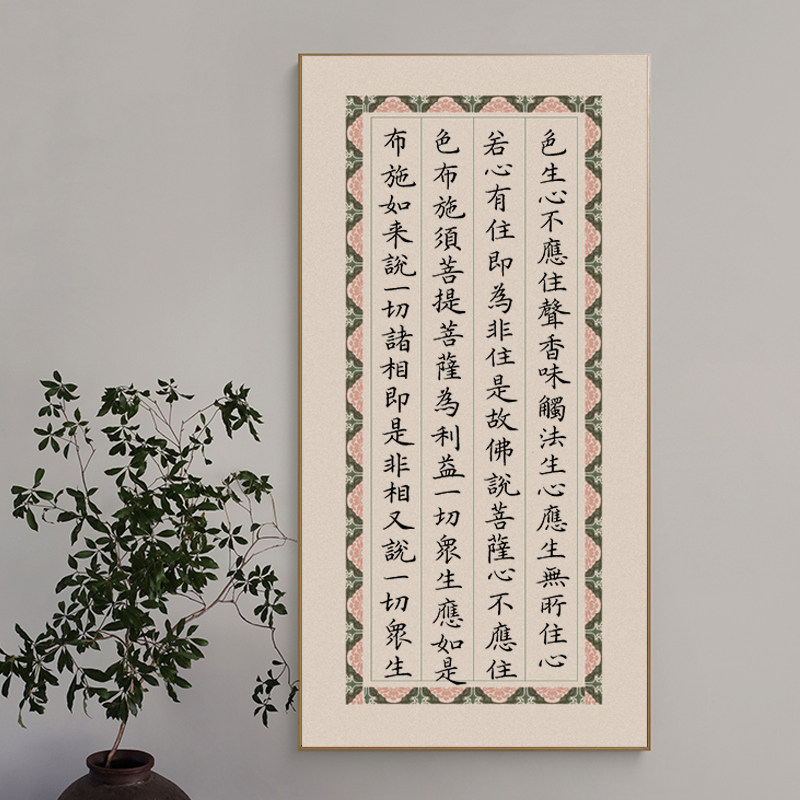 色生心不應住聲香味觸法生心應生無所住心
若心有住即為非住是故佛說菩薩心不應住
色布施須菩提菩薩為利益一切眾生應如是
布施如来說一切諸相即是非相又說一切眾生